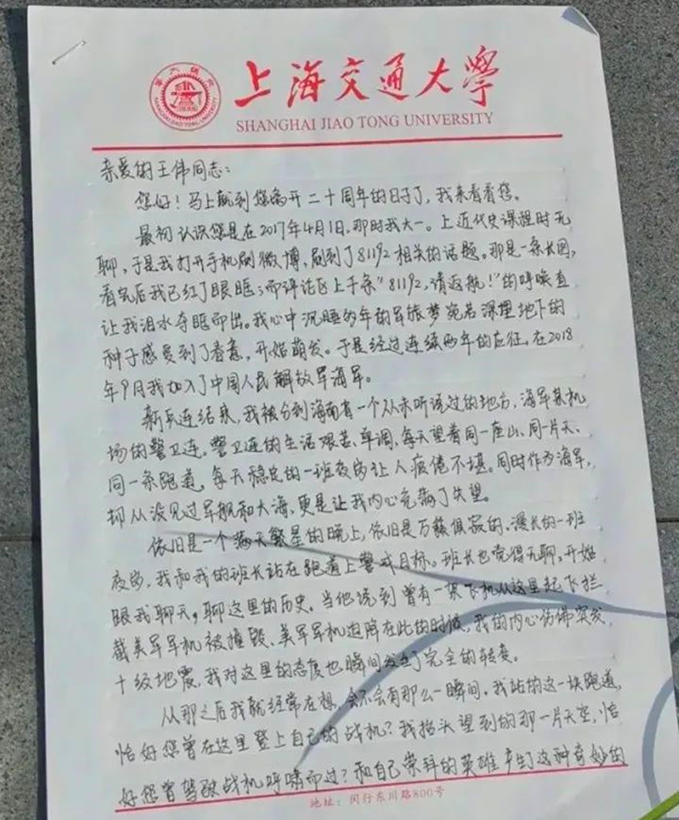 上海交通大学
SHANGHAI JIAO TONG UNIVERSITY
亲爱的王伟同志:
您好!马上就到您离开二十周年的日子了,我来看看您。
最初认识您是在2017年4月1日,那时我大一。上近代史课程时无
聊,于是我打开手机刷微博,刷到了81192相关的话题。那是一条长图,
看完后我已红了眼眶;而评论区上千条“81192,请返航!”的呼唤直
让我泪水夺眶而出。我心中沉睡多年的军旅梦宛若深埋地下的
种子感受到了春意,开始萌发。于是经过连续两年的应征,在2018
年9月我加入了中国人民解放军海军。
新兵连结束,我被分到海南省一个从未听说过的地方,海军某机
场的警卫连。警卫连的生活艰苦、单调,每天望着同一座山、同一片天、
同一条跑道,每天稳定的一班夜岗让人疲倦不堪。同时作为海军,
却从没见过军舰和大海,更是让我内心充满了失望。
依旧是一个满天繁星的晚上,依旧是万籁俱寂的、漫长的一班
夜岗,我和我的班长站在跑道上警戒目标。班长也觉得无聊,开始
跟我聊天,聊这里的历史。当他说到曾有一架飞机从这里起飞拦
截美军军机被撞毁、美军军机迫降在此的时候,我的内心仿佛突发
十级地震,我对这里的态度也瞬间发生了完全的转变。
从那之后我就经常在想,会不会有那么一瞬间,我站的这一块跑道,
恰好您曾在这里登上自己的战机?我抬头望到的那一片天空,恰
好您曾驾驶战机呼啸而过?和自己崇拜的英雄产生这种奇妙的
地址:闵行东川路800号